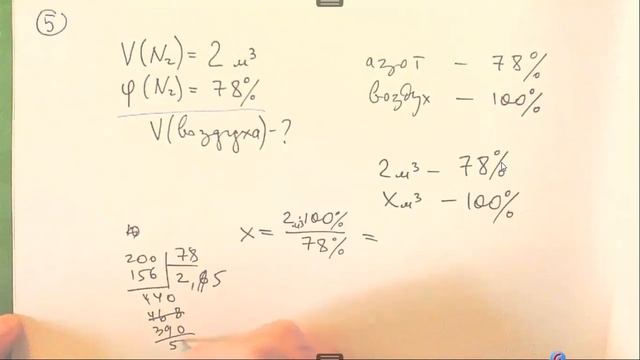 5
V(N₂) = 2 м³
φ(N₂) = 78%
V(воздуха) - ?
азот — 78%
воздух — 100%
2 м³ — 78%
x м³ — 100%
x = 2 м³ 100% / 78% =
200 | 78
156 | 2,5
440
390
5